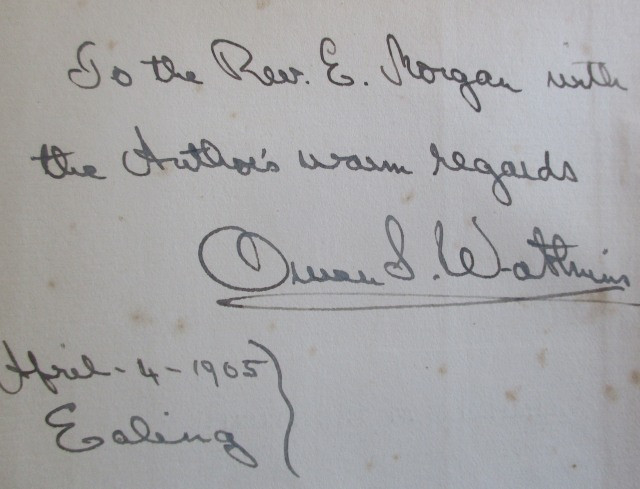 To the Rev. E. Morgan with
the Author's warm regards
Owen S. Watkins
April - 4 - 1905
Ealing